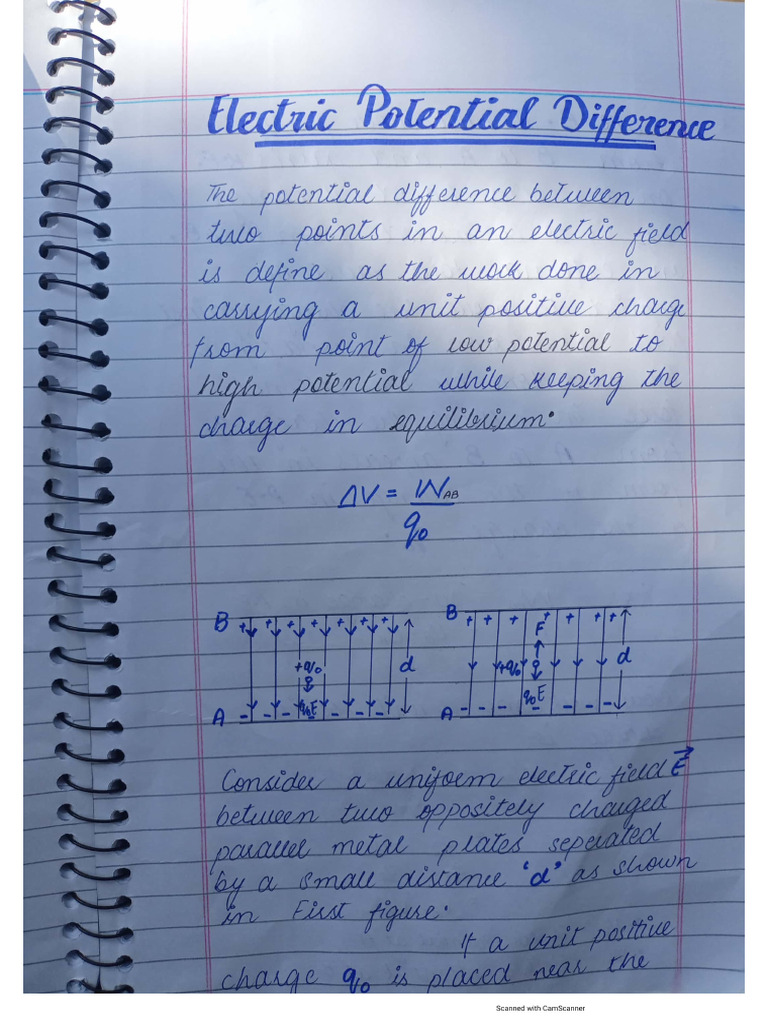 Electric Potential Difference
The potential difference between
two points in an electric field
is define as the work done in
carrying a unit positive charge
from point of low potential to
high potential while keeping the
charge in equilibrium.
ΔV = W_AB
q₀
B + + + + + + +
+q₀
d
q₀E
A - - - - - - -
B + + + + + + +
F
+q₀
d
q₀E
A - - - - - - -
Consider a uniform electric field E⃗
between two oppositely charged
parallel metal plates seperated
by a small distance 'd' as shown
in First figure.
If a unit positive
charge q₀ is placed near the
Scanned with CamScanner